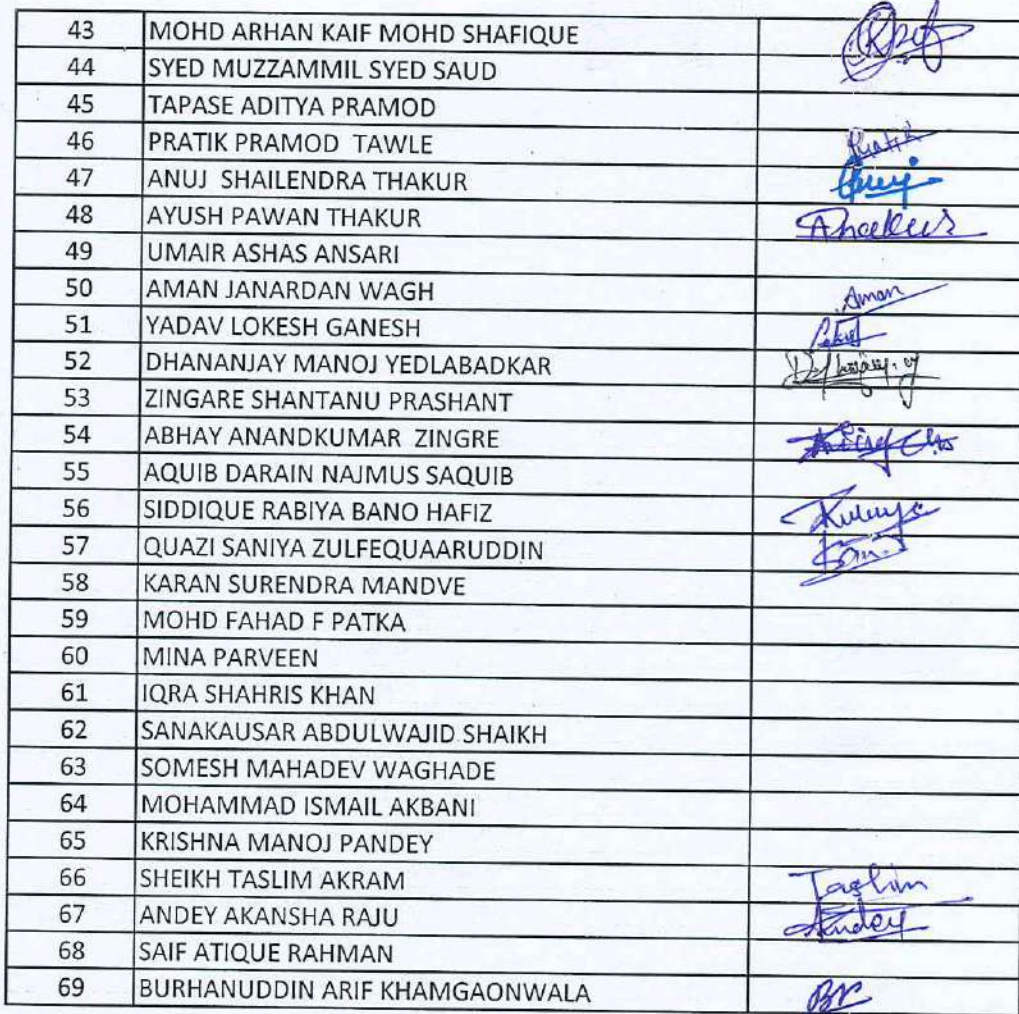 43 MOHD ARHAN KAIF MOHD SHAFIQUE
44 SYED MUZZAMMIL SYED SAUD
45 TAPASE ADITYA PRAMOD
46 PRATIK PRAMOD TAWLE Pratik
47 ANUJ SHAILENDRA THAKUR Anuj
48 AYUSH PAWAN THAKUR AThakur
49 UMAIR ASHAS ANSARI
50 AMAN JANARDAN WAGH Aman
51 YADAV LOKESH GANESH
52 DHANANJAY MANOJ YEDLABADKAR
53 ZINGARE SHANTANU PRASHANT
54 ABHAY ANANDKUMAR ZINGRE
55 AQUIB DARAIN NAJMUS SAQUIB
56 SIDDIQUE RABIYA BANO HAFIZ
57 QUAZI SANIYA ZULFEQUAARUDDIN
58 KARAN SURENDRA MANDVE
59 MOHD FAHAD F PATKA
60 MINA PARVEEN
61 IQRA SHAHRIS KHAN
62 SANAKAUSAR ABDULWAJID SHAIKH
63 SOMESH MAHADEV WAGHADE
64 MOHAMMAD ISMAIL AKBANI
65 KRISHNA MANOJ PANDEY
66 SHEIKH TASLIM AKRAM Taslim
67 ANDEY AKANSHA RAJU Andey
68 SAIF ATIQUE RAHMAN
69 BURHANUDDIN ARIF KHAMGAONWALA